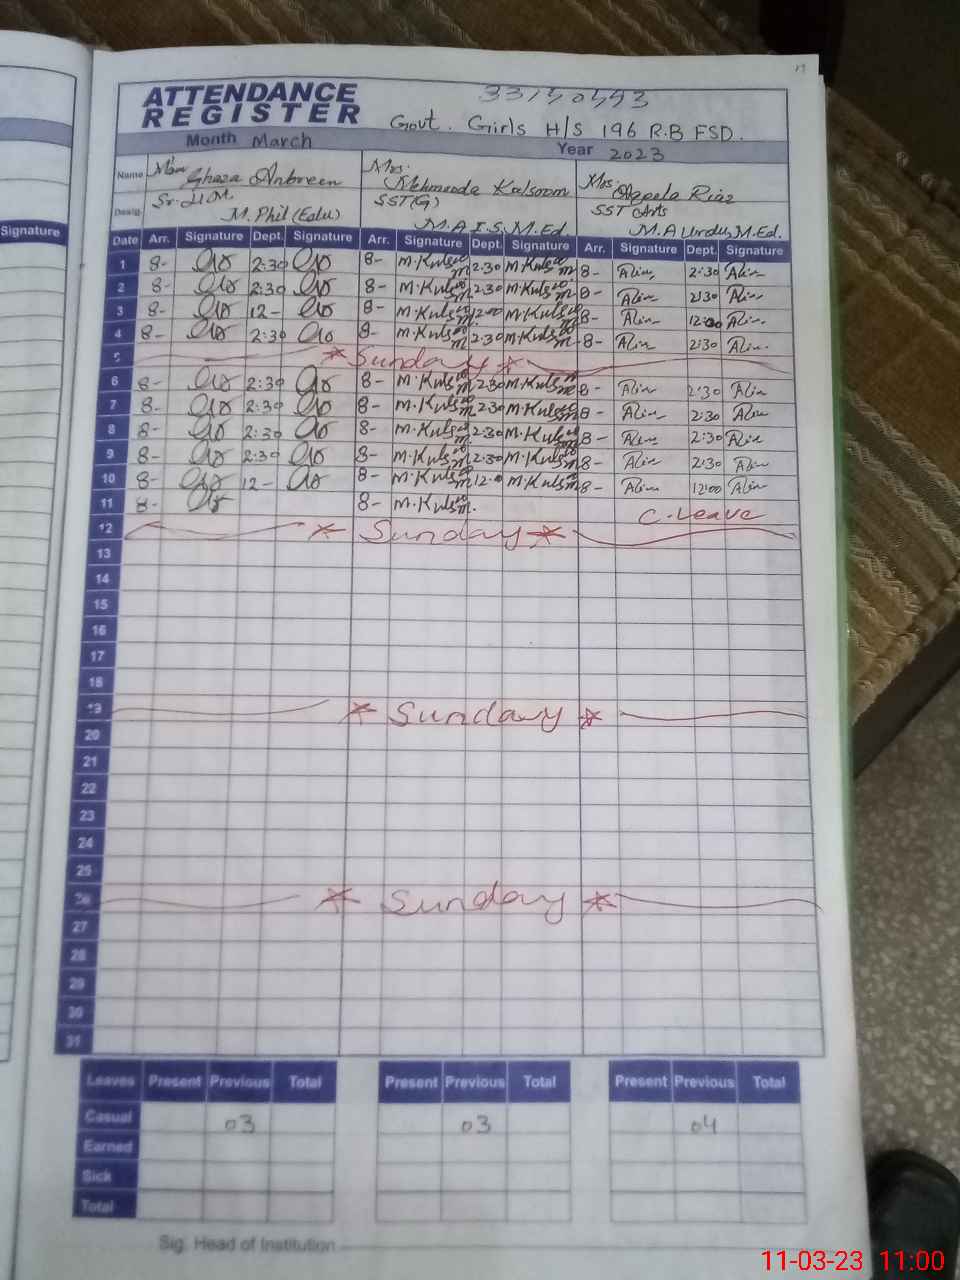 Signature
ATTENDANCE
REGISTER
Govt. Girls H/S 196 R.B FSD.
Month March Year 2023
Name Anbreen Mrs. Kalsoom Mrs. Riaz
Desig. M.Phil (Edu) SST(G) M.A I.S, M.Ed. SST Arts M.A Urdu, M.Ed.
Date Arr. Signature Dept. Signature Arr. Signature Dept. Signature Arr. Signature Dept. Signature
1 8- 2:30 8- M.Kulsoom 2:30 M.Kulsoom 8- 2:30
2 8- 2:30 8- M.Kulsoom 2:30 M.Kulsoom 8- 2:30
3 8- 12- 8- M.Kulsoom 12:00 M.Kulsoom 8- 12:00
4 8- 2:30 8- M.Kulsoom 2:30 M.Kulsoom 8- 2:30
5 Sunday
6 8- 2:30 8- M.Kulsoom 2:30 M.Kulsoom 8- 2:30
7 8- 2:30 8- M.Kulsoom 2:30 M.Kulsoom 8- 2:30
8 8- 2:30 8- M.Kulsoom 2:30 M.Kulsoom 8- 2:30
9 8- 2:30 8- M.Kulsoom 2:30 M.Kulsoom 8- 2:30
10 8- 12- 8- M.Kulsoom 12:00 M.Kulsoom 8- 12:00
11 8- 8- M.Kulsoom. C.Leave
12 Sunday
13
14
15
16
17
18
19 Sunday
20
21
22
23
24
25
26 Sunday
27
28
29
30
31
Leaves Present Previous Total Present Previous Total Present Previous Total
Casual 03 03 04
Earned
Sick
Total
Sig. Head of Institution
11-03-23 11:00